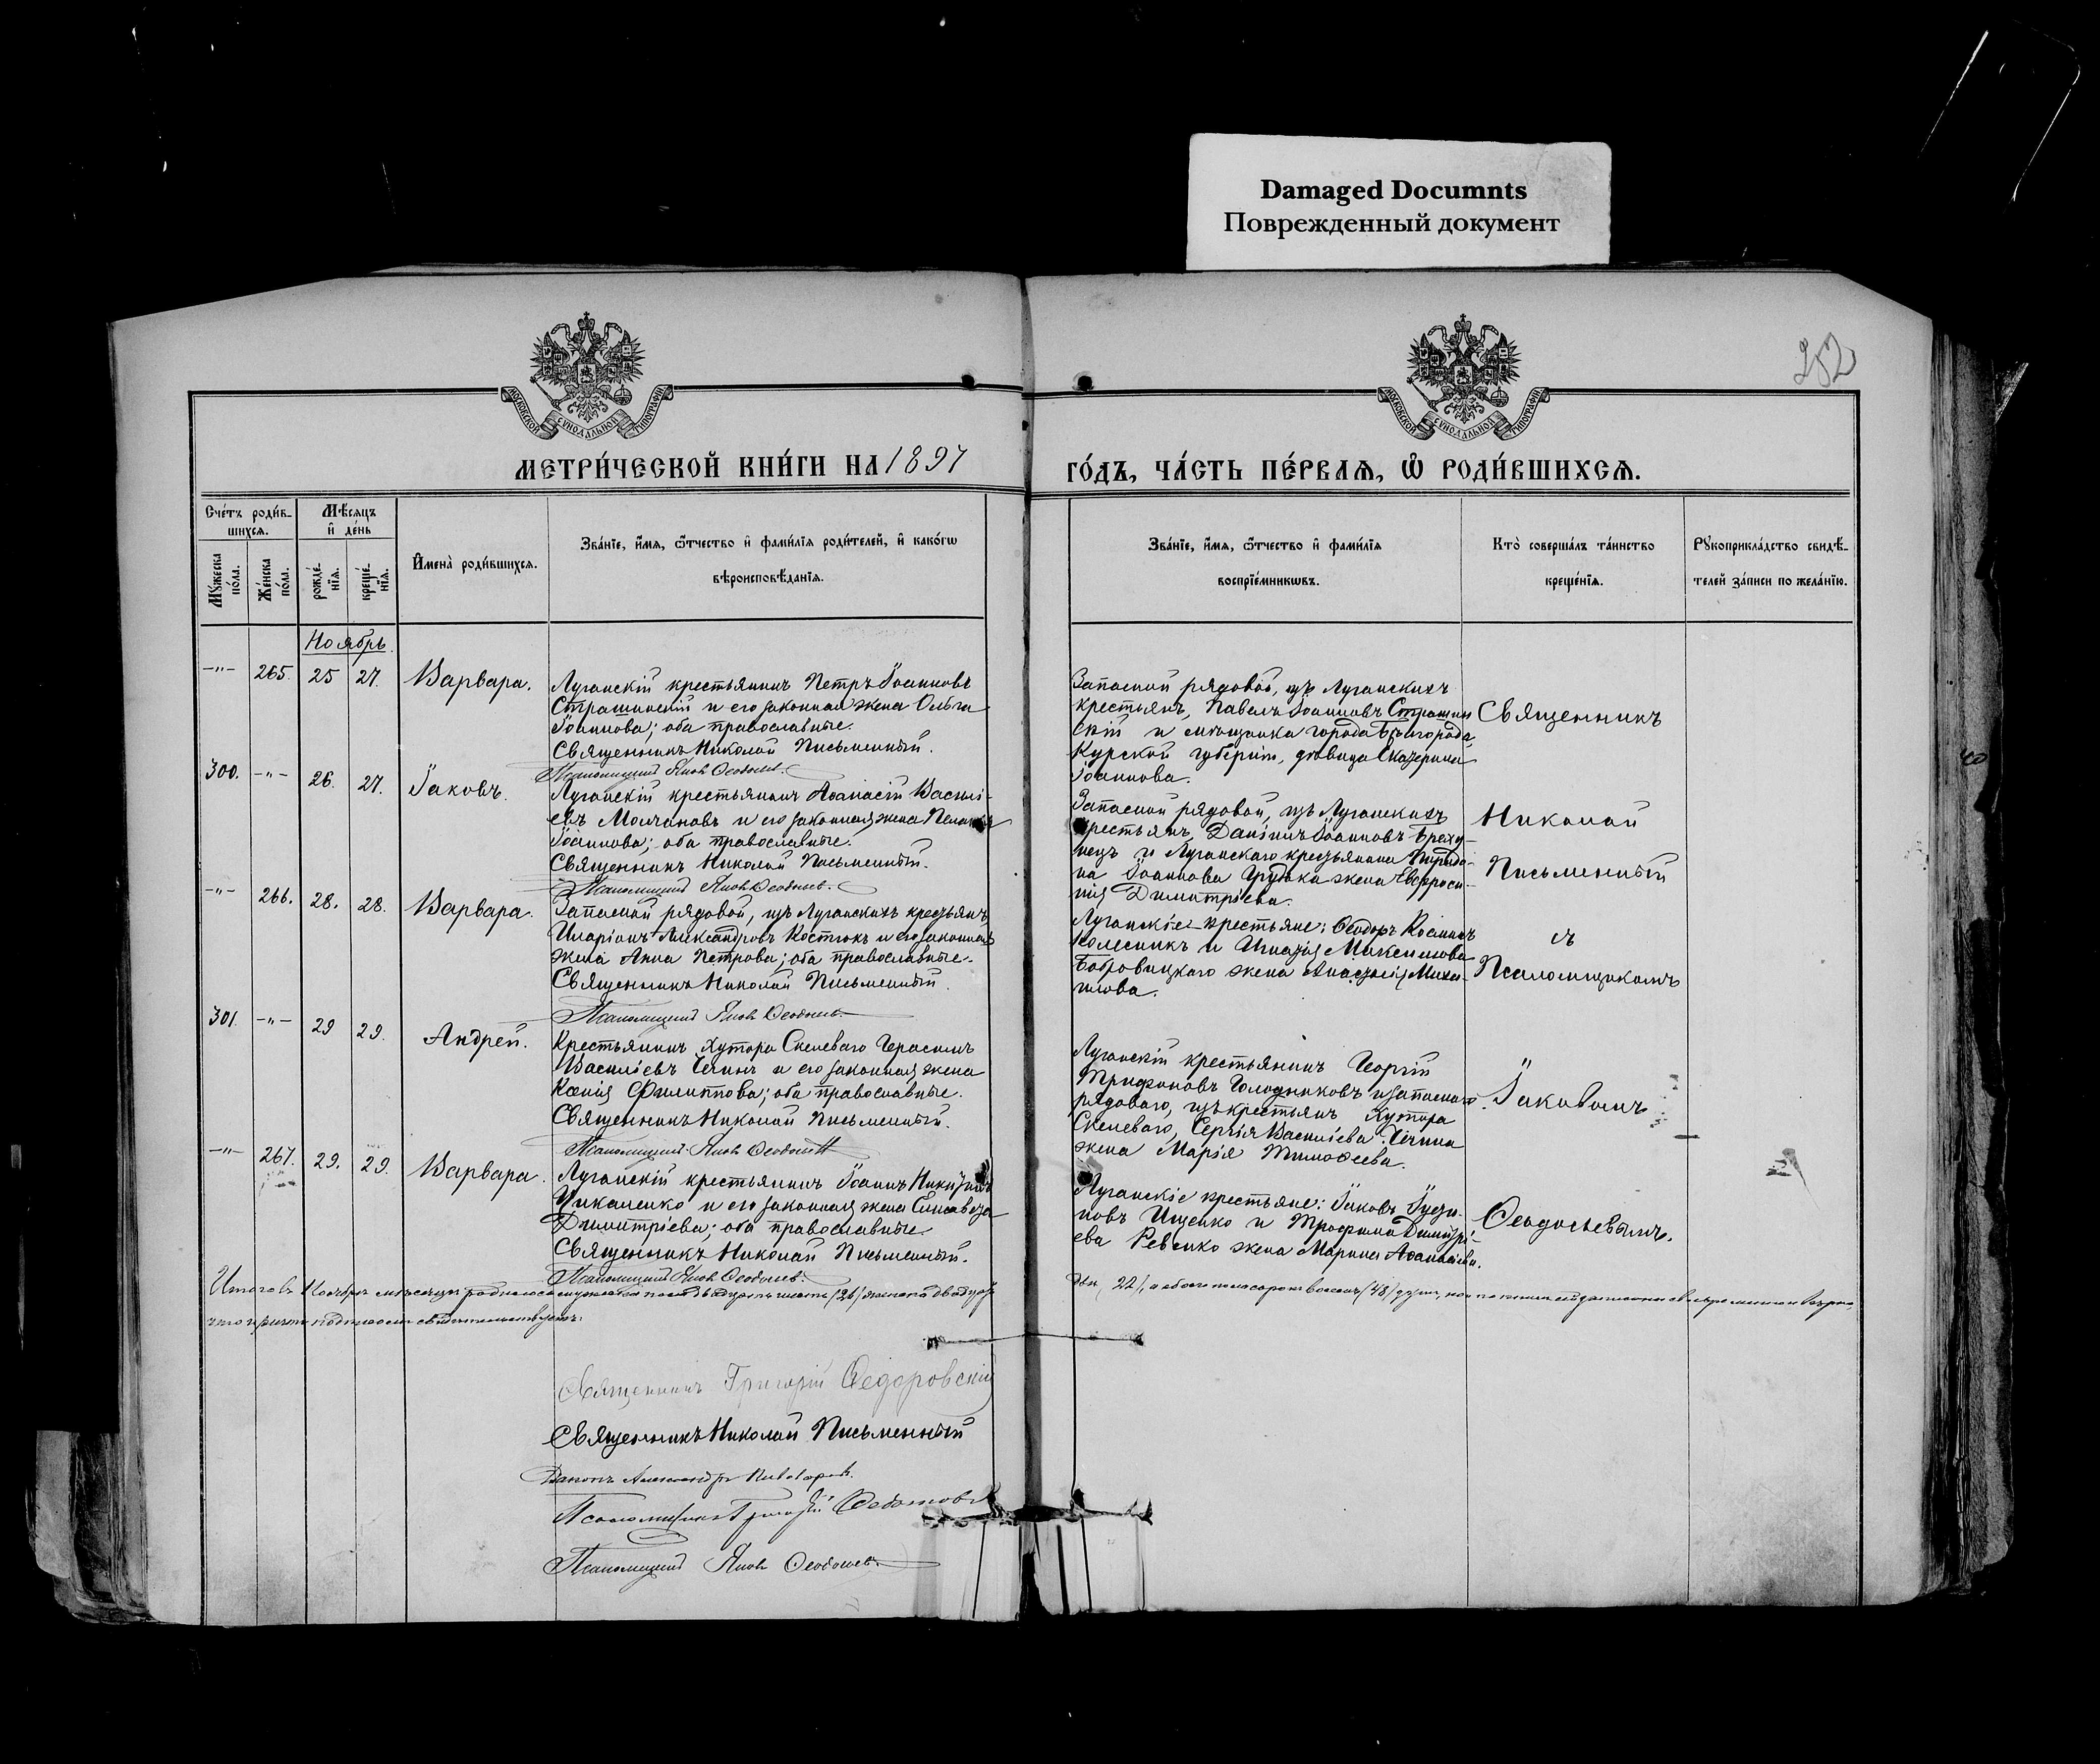 Damaged Documnts
Поврежденный документ
252
МОСКОВСКОЙ СѴНОДАЛЬНОЙ ТИПОГРАФІИ
МОСКОВСКОЙ СѴНОДАЛЬНОЙ ТИПОГРАФІИ
МЕТРИ́ЧЕСКОЙ КНИ́ГИ НА 1897
ГО́ДЪ, ЧА́СТЬ ПЕ́РВАѦ, Ѡ҆ РОДИ́ВШИХСѦ.
Сче́тъ роди́в-
шихсѧ.
Мꙋ́жеска по́ла.
Же́нска по́ла.
Мѣ́сѧцъ
и҆ де́нь
рожде́-
нїѧ.
креще́-
нїѧ.
И҆мена̀ роди́вшихсѧ.
Зва́нїе, и҆́мѧ, ѻ҆́тчество и҆ фами́лїѧ роди́телей, и҆ како́гѡ
вѣроисповѣ́данїѧ.
Зва́нїе, и҆́мѧ, ѻ҆́тчество и҆ фами́лїѧ
воспрїе́мникѡвъ.
Кто̀ соверша́лъ та́инство
креще́нїѧ.
Рꙋкоприкла́дство свидѣ́-
телей за́писи по жела́нїю.
Ноябрь.
—"— 265. 25 27. Варвара.
Луганскій крестьянинъ Петръ Іоанновъ
Страшинскій и его законная жена Ольга
Іоаннова; оба православные.
Священникъ Николай Письменный.
Псаломщикъ Яковъ Ѳеодосьев.
Запасной рядовой, изъ Луганскихъ
крестьянъ, Павелъ Іоанновъ Страшин
скій и мѣщанка города Бѣлгорода,
Курской губерніи, дѣвица Екатерина
Іоаннова.
300. —"— 26. 27. Іаковъ.
Луганскій крестьянинъ Аѳанасій Василі-
евъ Молчановъ и его законная жена Пелагія
Іоаннова; оба православные.
Священникъ Николай Письменный.
Псаломщикъ Яковъ Ѳеодосьев.
Запасной рядовой, изъ Луганскихъ
крестьянъ, Даніилъ Іоанновъ Бреху-
нецъ и Луганскаго крестьянина
на Іоаннова жена Евфроси-
нія Димитріева.
—"— 266. 28. 28. Варвара.
Запасной рядовой, изъ Луганскихъ крестьянъ,
Иларіонъ Александровъ Костюкъ и его законная
жена Анна Петрова; оба православные.
Священникъ Николай Письменный.
Псаломщикъ Яковъ Ѳеодосьев.
Луганскіе крестьяне: Ѳеодоръ Іоанновъ
Колесникъ и Игнатія Максимова
Бобровицкаго жена Анастасія Миха-
илова.
301. —"— 29 29. Андрей.
Крестьянинъ Хутора Скелеваго Герасимъ
Василіевъ Чечинъ и его законная жена
Ксенія Филиппова; оба православные.
Священникъ Николай Письменный.
Псаломщикъ Яковъ Ѳеодосьев
Луганскій крестьянинъ Георгій
Трифоновъ Голодниковъ и запаснаго
рядоваго, изъ крестьянъ Хутора
Скелеваго, Сергія Василіева Чечина
жена Марія Тимоѳеева.
—"— 267. 29. 29. Варвара.
Луганскій крестьянинъ Іоаннъ Никитинъ
Чикаленко и его законная жена Елисавета
Димитріева; оба православные.
Священникъ Николай Письменный.
Псаломщикъ Яковъ Ѳеодосьев.
Луганскіе крестьяне: Іаковъ Іусти-
новъ Ищенко и Трофима Димитрі-
ева Ревенко жена Марина Аѳанасіева.
Священникъ
Николай
Письменный
съ
Псаломщикомъ
Іаковомъ
Ѳеодосьевымъ.
Итого въ Ноябрѣ мѣсяцѣ родилось мужескаго пола двадцать шесть (26) женска двадцать
два (22), а обоего пола сорокъ восемь (48) душъ,
что причтъ подписомъ свидѣтельствуетъ:
Священникъ Григорій Ѳедоровскій
Священникъ Николай Письменный
Діаконъ Александръ Пивоваров.
Псаломщикъ Григорій
Псаломщикъ Яковъ Ѳеодосьев.